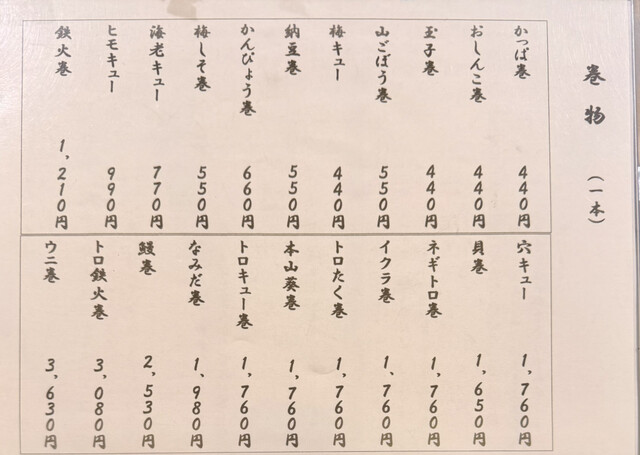 巻物(一本)
かっぱ巻 440円
おしんこ巻 440円
玉子巻 440円
山ごぼう巻 550円
梅キュー 440円
納豆巻 550円
かんぴょう巻 660円
梅しそ巻 550円
海老キュー 770円
ヒモキュー 990円
鉄火巻 1,210円
穴キュー 1,760円
貝巻 1,650円
ネギトロ巻 1,760円
イクラ巻 1,760円
トロたく巻 1,760円
本山葵巻 1,760円
トロキュー巻 1,760円
なみだ巻 1,980円
鰻巻 2,530円
トロ鉄火巻 3,080円
ウニ巻 3,630円